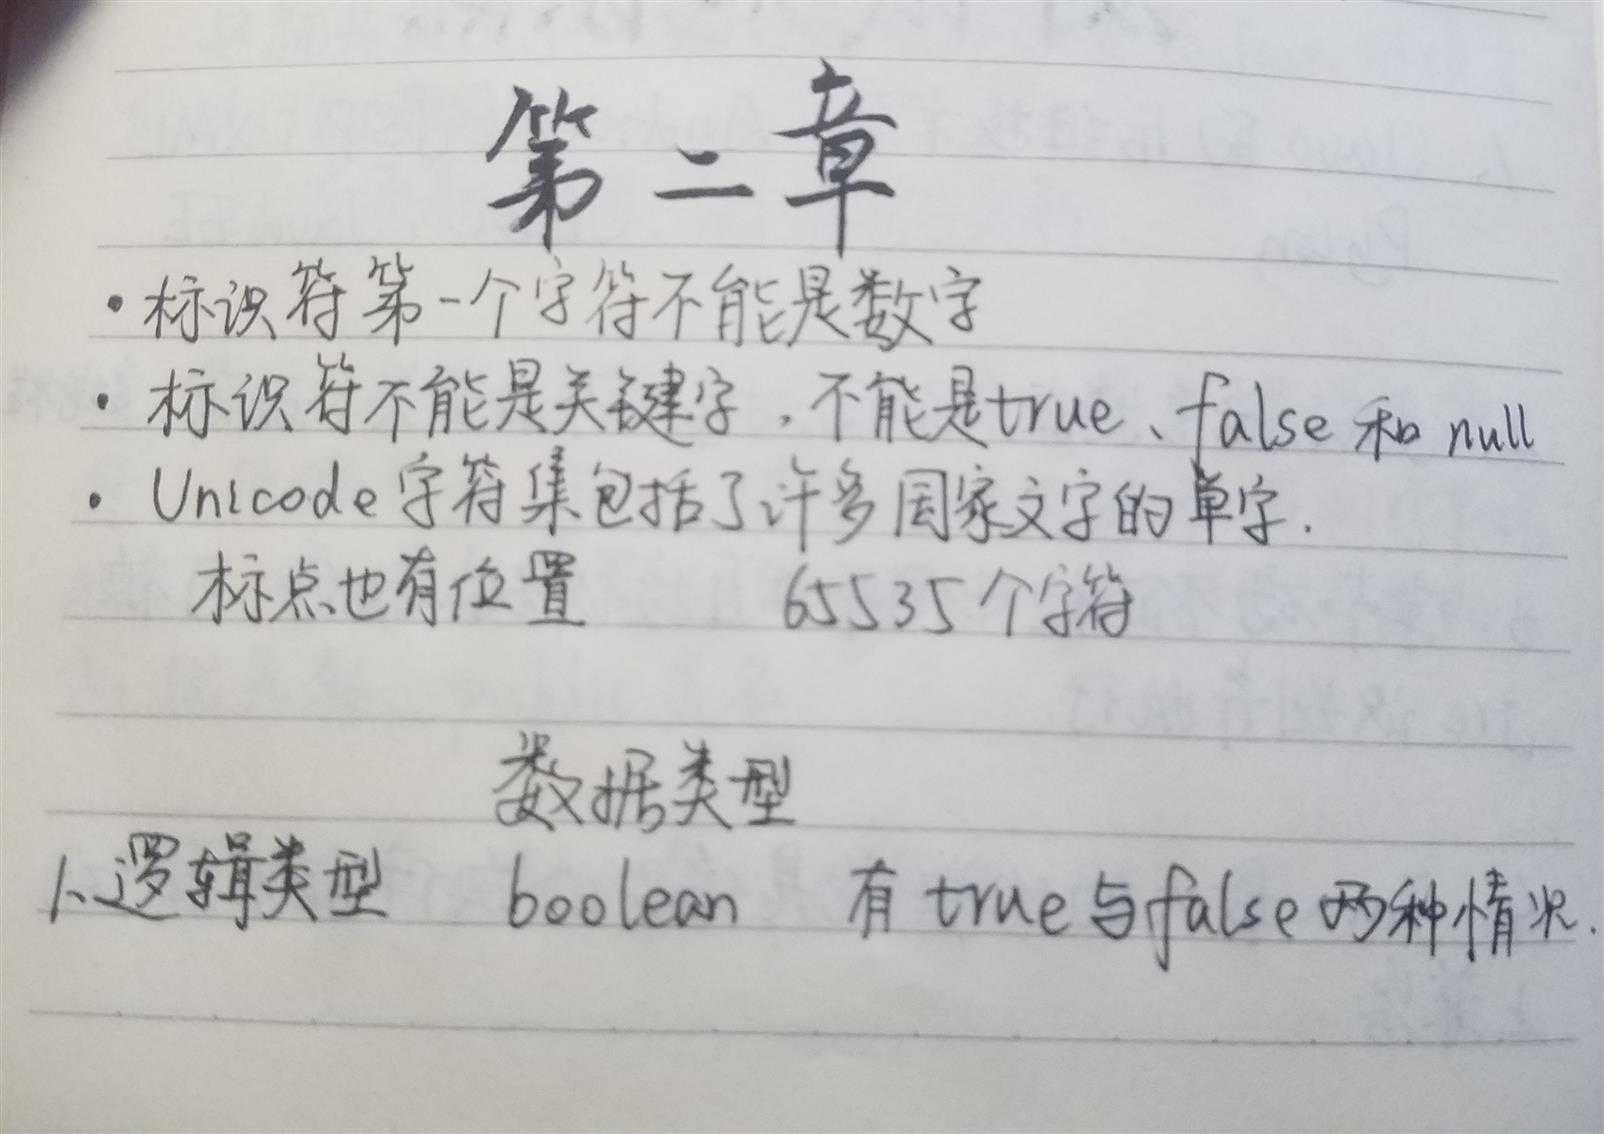 第二章
·标识符第一个字符不能是数字
·标识符不能是关键字,不能是true、false和null
·Unicode字符集包括了许多国家文字的单字.
标点也有位置 65535个字符
数据类型
1、逻辑类型 boolean 有true与false两种情况.